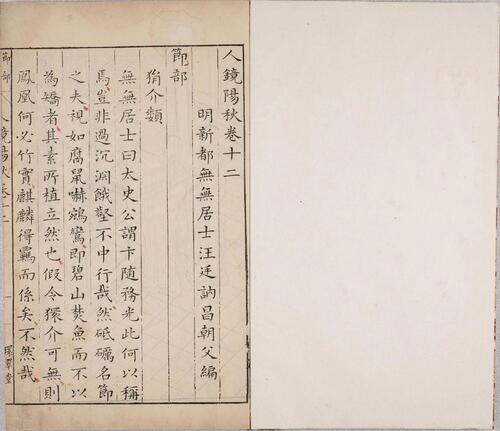 人鏡陽秋卷十二
明新都無無居士汪廷訥昌朝父編
節部
狷介類
無無居士曰太史公謂卞随務光此何以稱
焉豈非過沉淵餓壑不中行哉然砥礪名節
之夫視如腐鼠嚇鵷鸞即碧山焚魚而不以
為矯者其素所植立然也假令獧介可無則
鳳凰何必竹實麒麟得羈而係矣不然哉
節部 人鏡陽秋卷十二 一 環翠堂